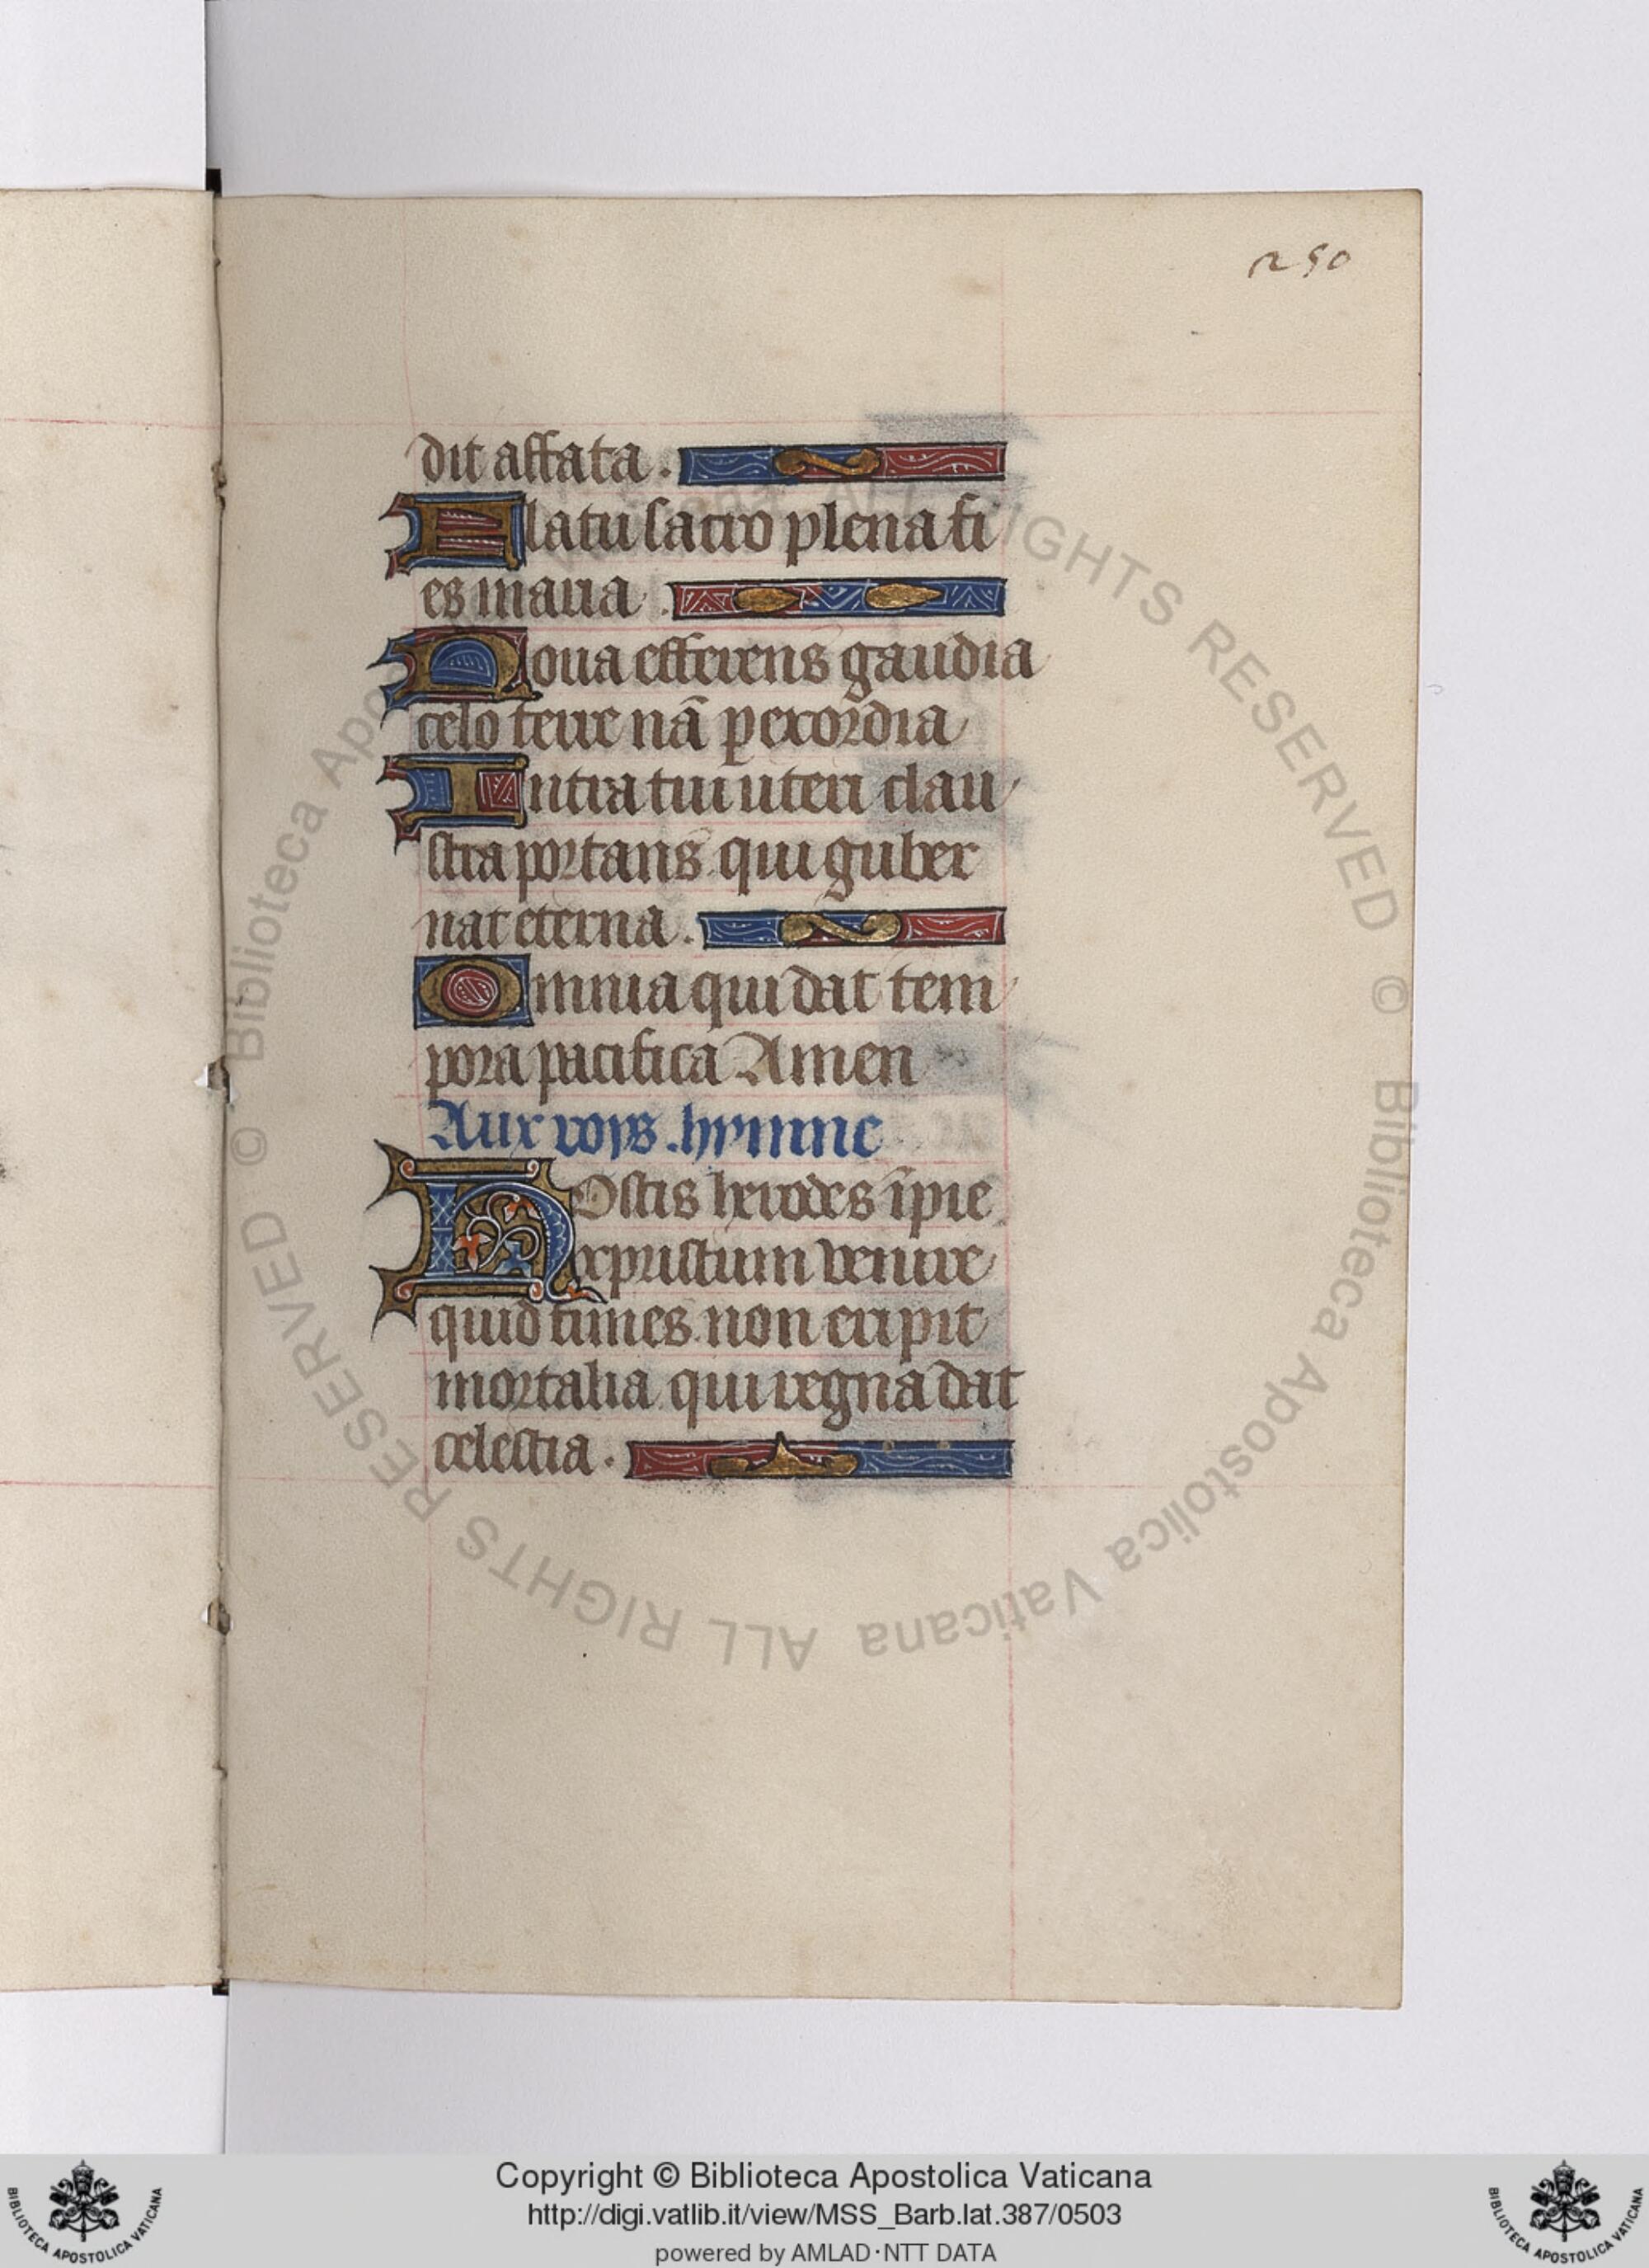 250
dit affata.
Flatu sacro plena fi
es maria.
Noua efferens gaudia
celo terre nā p exordia
Intra tui uteri clau
stra portans qui guber
nat eterna.
Omnia qui dat tem
pora pacifica Amen
Aux roys. hymne
HOstis herodes īpie
xpristum venire
quid times non eripit
mortalia qui regna dat
celestia.
© Biblioteca Apostolica Vaticana ALL RIGHTS RESERVED
© Biblioteca Apostolica Vaticana ALL RIGHTS RESERVED
Copyright © Biblioteca Apostolica Vaticana
http://digi.vatlib.it/view/MSS_Barb.lat.387/0503
powered by AMLAD·NTT DATA
BIBLIOTECA APOSTOLICA VATICANA
BIBLIOTECA APOSTOLICA VATICANA